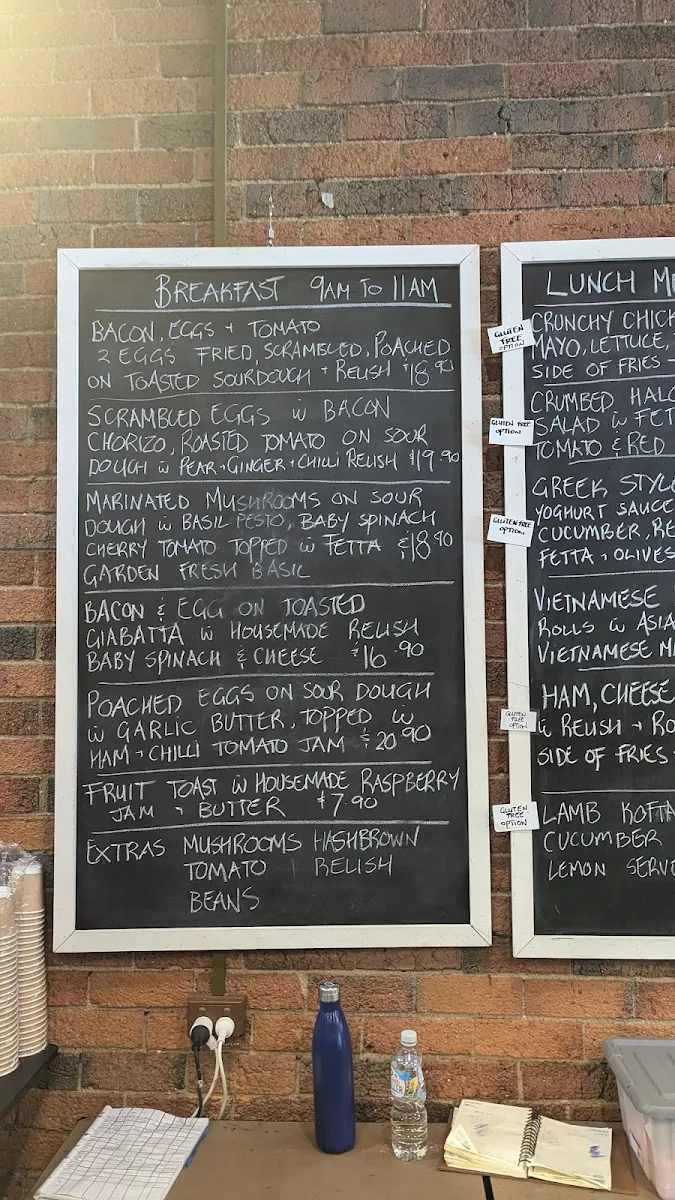 BREAKFAST 9AM TO 11AM
BACON, EGGS + TOMATO
2 EGGS FRIED, SCRAMBLED, POACHED
ON TOASTED SOURDOUGH + RELISH $18.90
SCRAMBLED EGGS W BACON
CHORIZO, ROASTED TOMATO ON SOUR
DOUGH W PEAR + GINGER + CHILLI RELISH $19.90
MARINATED MUSHROOMS ON SOUR
DOUGH W BASIL PESTO, BABY SPINACH
CHERRY TOMATO TOPPED W FETTA $18.90
GARDEN FRESH BASIL
BACON & EGG ON TOASTED
GIABATTA W HOUSEMADE RELISH
BABY SPINACH & CHEESE $16.90
POACHED EGGS ON SOUR DOUGH
W GARLIC BUTTER, TOPPED W
HAM + CHILLI TOMATO JAM $20.90
FRUIT TOAST W HOUSEMADE RASPBERRY
JAM + BUTTER $7.90
EXTRAS MUSHROOMS HASHBROWN
TOMATO RELISH
BEANS
LUNCH ME
GLUTEN
FREE
OPTION
CRUNCHY CHICK
MAYO, LETTUCE,
SIDE OF FRIES
GLUTEN FREE
OPTION
CRUMBED HALO
SALAD W FET
TOMATO & RED
GLUTEN FREE
OPTION
GREEK STYLE
YOGHURT SAUCE
CUCUMBER, RE
FETTA + OLIVES
VIETNAMESE
ROLLS W ASIA
VIETNAMESE M
GLUTEN
FREE
OPTION
HAM, CHEESE
W RELISH + RO
SIDE OF FRIES
GLUTEN
FREE
OPTION
LAMB KOFTA
CUCUMBER
LEMON SERVE